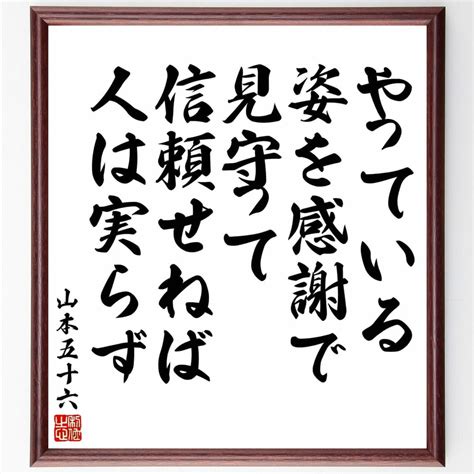 やっている
姿を感謝で
見守って
信頼せねば
人は実らず
山本五十六